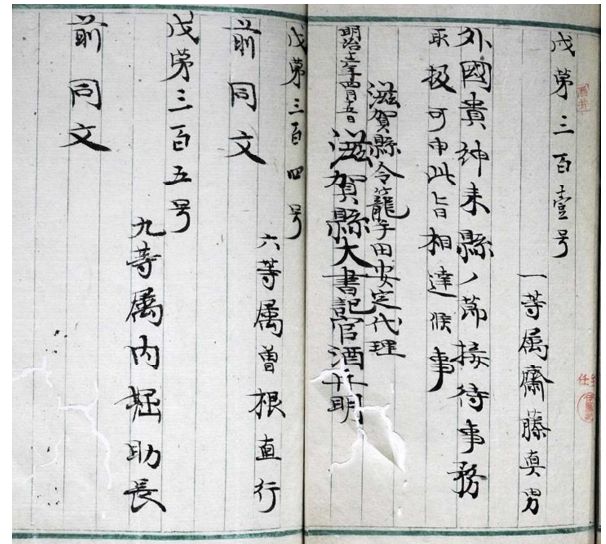 戊第三百壹号
一等属齋藤真男
外國貴紳来縣ノ節接待事務
取扱可申此旨相達候事
滋賀縣令籠手田安定代理
滋賀縣大書記官酒井明
戊第三百四号
六等属曽根直行
前同文
戊第三百五号
九等属内堀助長
前同文